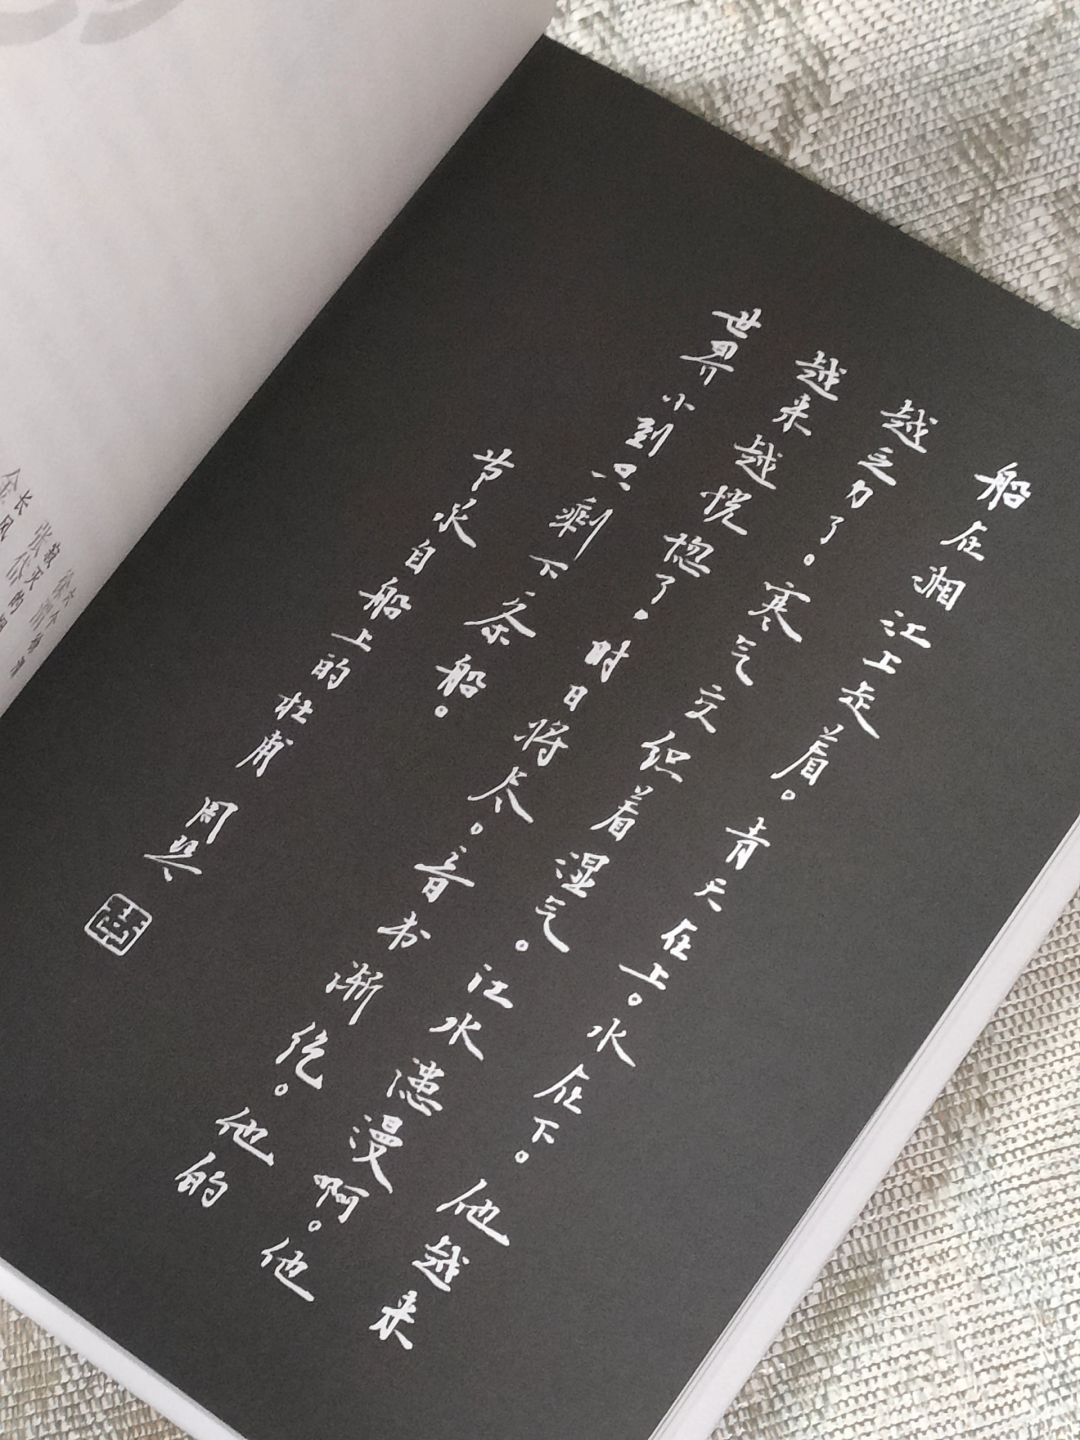 船在湘江上走着。青天在上。水在下。他越来
越乏力了。寒气交织着湿气。江水漶漫啊。他
越来越恍惚了。时日将尽。音书渐绝。他的
世界小到只剩下一条船。
节录自船上的杜甫 周琴